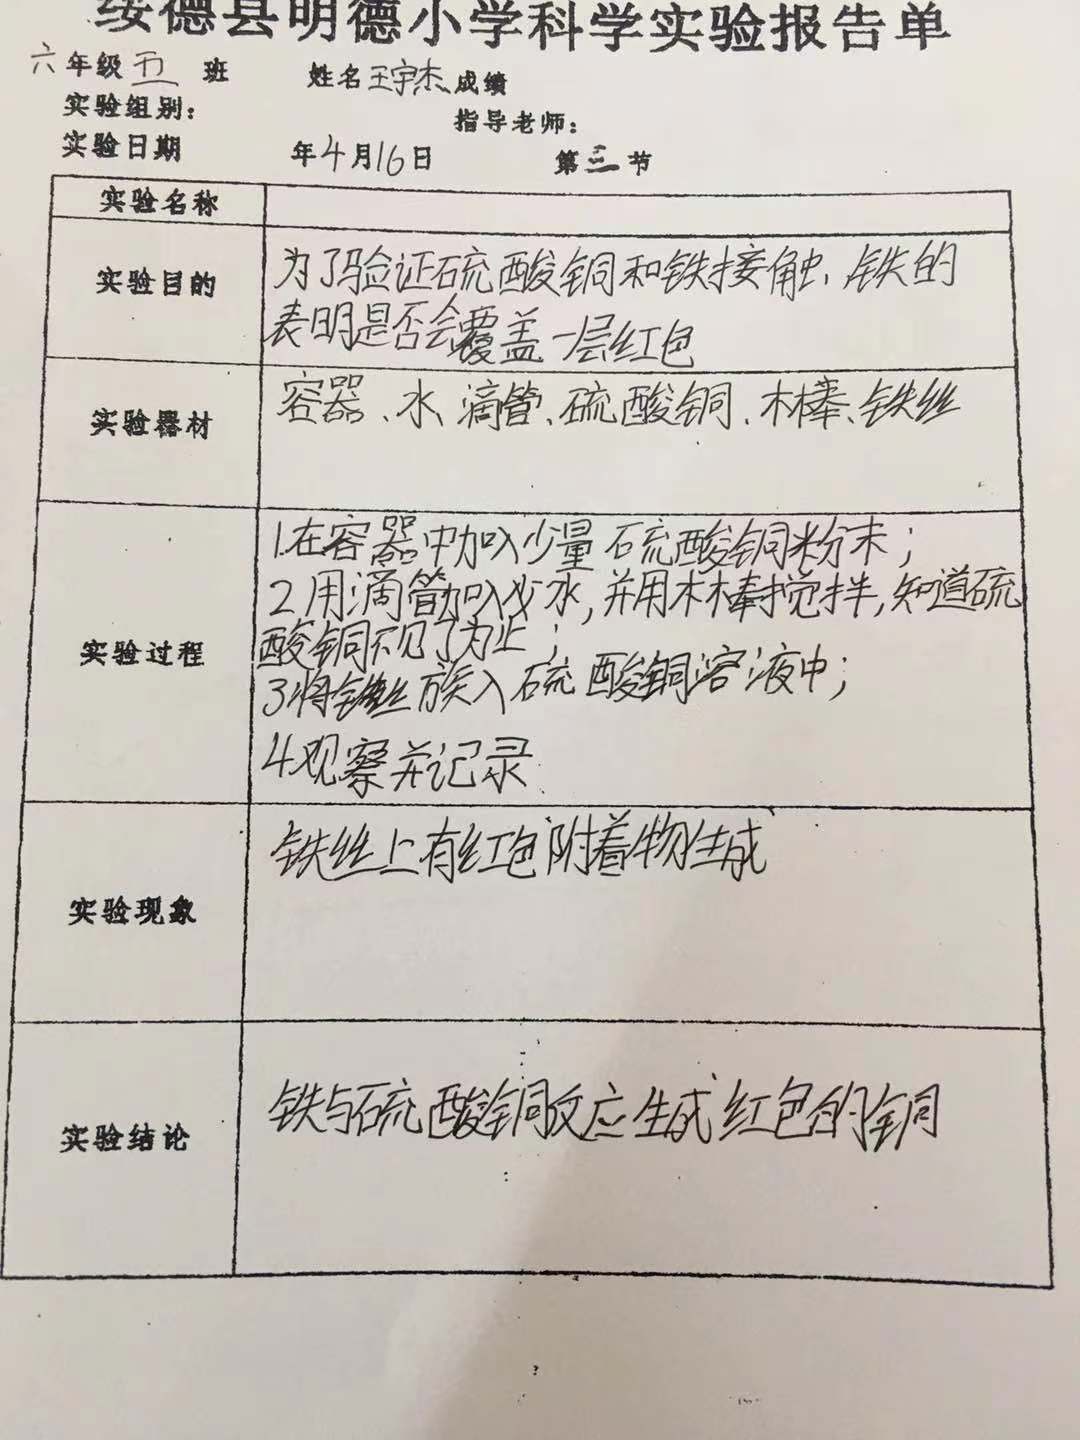 绥德县明德小学科学实验报告单
六年级五班 姓名王宇杰成绩
实验组别： 指导老师：
实验日期 年4月16日 第三节
实验名称
实验目的
为了验证硫酸铜和铁接触，铁的
表明是否会覆盖一层红色
实验器材
容器、水、滴管、硫酸铜、木棒、铁丝
实验过程
1.在容器中加入少量硫酸铜粉末；
2.用滴管加入少水，并用木棒搅拌，知道硫
酸铜不见了为止；
3将铁丝放入硫酸铜溶液中；
4.观察并记录
实验现象
铁丝上有红色附着物生成
实验结论
铁与硫酸铜反应生成红色的铜